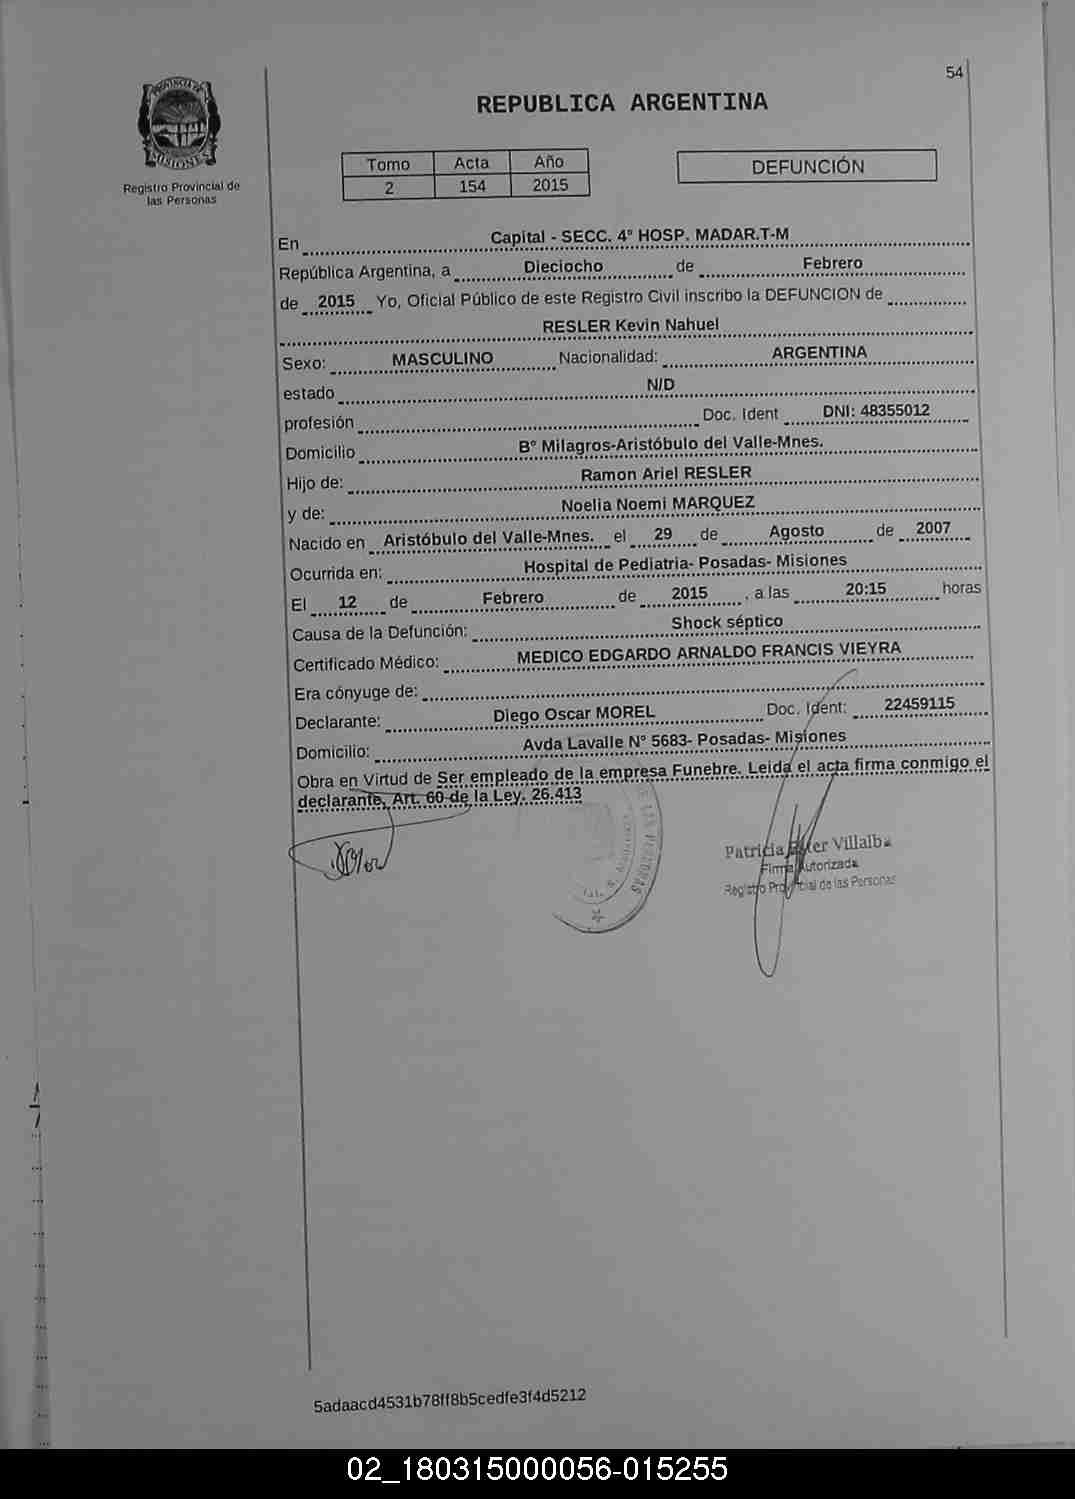 54
PROVINCIA DE
MISIONES
Registro Provincial de
las Personas
REPUBLICA ARGENTINA
Tomo Acta Año
2 154 2015
DEFUNCIÓN
En Capital - SECC. 4° HOSP. MADAR.T-M
República Argentina, a Dieciocho de Febrero
de 2015 Yo, Oficial Público de este Registro Civil inscribo la DEFUNCION de
RESLER Kevin Nahuel
Sexo: MASCULINO Nacionalidad: ARGENTINA
estado N/D
profesión Doc. Ident DNI: 48355012
Domicilio B° Milagros-Aristóbulo del Valle-Mnes.
Hijo de: Ramon Ariel RESLER
y de: Noelia Noemi MARQUEZ
Nacido en Aristóbulo del Valle-Mnes. el 29 de Agosto de 2007
Ocurrida en: Hospital de Pediatria- Posadas- Misiones
El 12 de Febrero de 2015 , a las 20:15 horas
Causa de la Defunción: Shock séptico
Certificado Médico: MEDICO EDGARDO ARNALDO FRANCIS VIEYRA
Era cónyuge de:
Declarante: Diego Oscar MOREL Doc. Ident: 22459115
Domicilio: Avda Lavalle N° 5683- Posadas- Misiones
Obra en Virtud de Ser empleado de la empresa Funebre. Leida el acta firma conmigo el
declarante, Art. 60 de la Ley. 26.413
DE LAS PERSONAS
Patricia Ester Villalba
Firma Autorizada
Registro Provincial de las Personas
5adaacd4531b78ff8b5cedfe3f4d5212
02_180315000056-015255